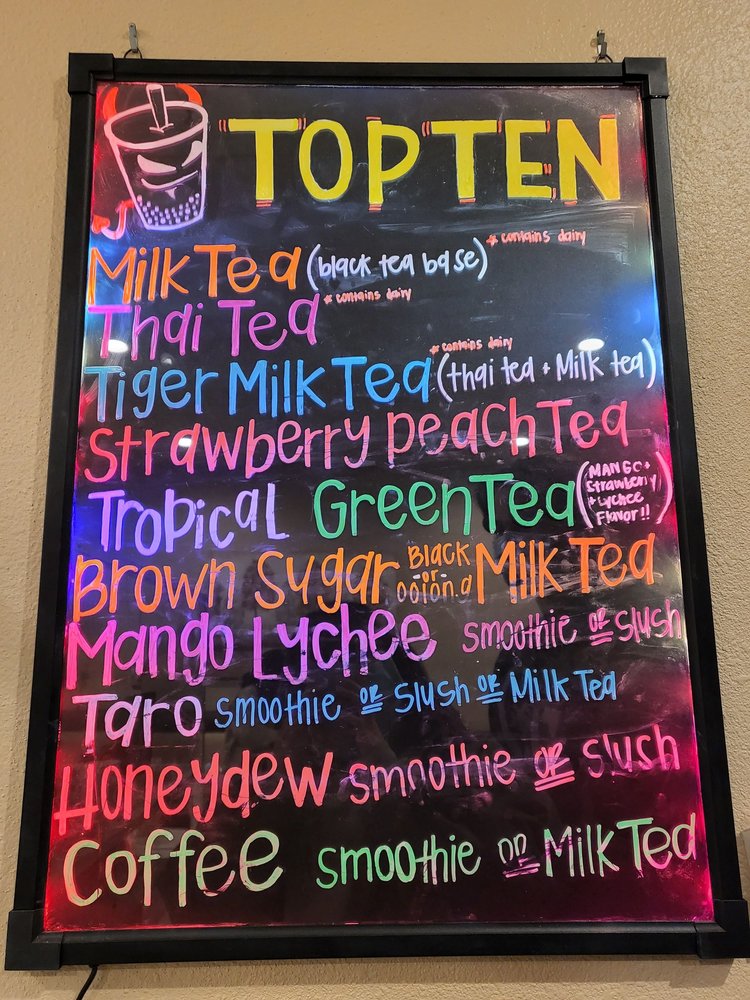 TOP TEN
Milk Tea (black tea base) * contains dairy
Thai Tea * contains dairy
Tiger Milk Tea (thai tea + Milk tea) * contains dairy
Strawberry peach Tea
Tropical Green Tea (MANGO + Strawberry + Lychee Flavor!!)
Brown Sugar Black or oolon.g Milk Tea
Mango Lychee smoothie or slush
Taro smoothie or slush or Milk Tea
Honeydew smoothie or slush
Coffee smoothie or Milk Tea